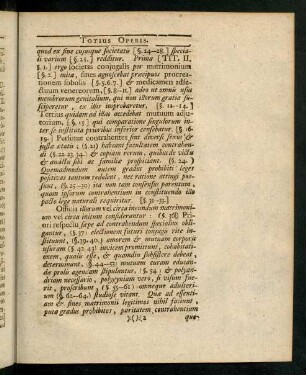 TOTIUS OPERIS.
quod ex fine cujusque societatis [§. 24-28.] specia-
di varium [§. 25.] redditur. Prima [TIT. II,
§. 1.] ergo societas conjugalis per matrimonium
[§. 2.] inita, fines agnoscebat præcipuos procrea-
tionem sobolis [§. 5. 6. 7.] & medicamen adfe-
ctuum venereorum, [§. 8-11.] adeo ut omnis usus
membrorum genitalium, qui non istorum gratia su-
sciperetur, ex his improbaretur. [§. 12-14.]
Tertius quidam ad hæc accedebat mutuum adju-
torium, [§. 15.] qui comparatione singulorum in-
ter se instituta prioribus inferior censebatur. [§. 16-
19.] Potissime contrahentes sint diversi sexus &
justa ætate; [§. 21.] habeant facultatem contrahen-
di [§. 22. 23. 24.] & copiam rerum, quibus tam victus
& amictus sibi ac familiæ prospiciant. [§. 24.]
Quemadmodum autem gradus prohibiti leges
positivas tantum redolent, nec ratione attingi pos-
sunt, [§. 25-30.] ita non tam consensus parentum,
quam ipsorum contrahentium in constituenda illa
pacto lege naturali requiritur. [§. 31-33.]
Officia illorum vel circa ineundum matrimoni-
um vel circa initum considerantur: (§. 38.) Pri-
ori respectu sæpe ad contrahendum speciales obli-
gantur, (§. 37.) electionem futuri conjugis rite in-
stituunt, (§. 39-41.) amorem & mutuam corporis
usuram (§. 42. 43.) invicem promittunt, cohabitati-
onem, qualis esse, & quamdiu subsistere debeat,
determinant, (§. 44-51.) mutuam curam educan-
de prolis agendam stipulantur, (§. 54.) & polyan-
driam necessario, polygyniam vero, si visum fue-
rit, proscribunt, (§. 55-61.) omneque adulteri-
um (§. 62-64.) studiose vitant. Quæ ad essenti-
am & fines matrimonii legitimos nihil faciunt,
puta gradus prohibitos, paritatem contrahentium
)( )( 2
quæ-